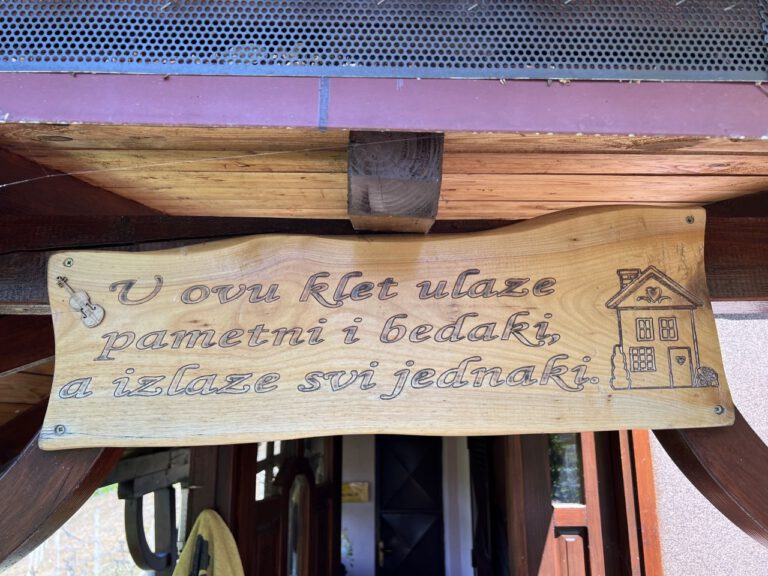 U ovu klet ulaze
pametni i bedaki,
a izlaze svi jednaki.